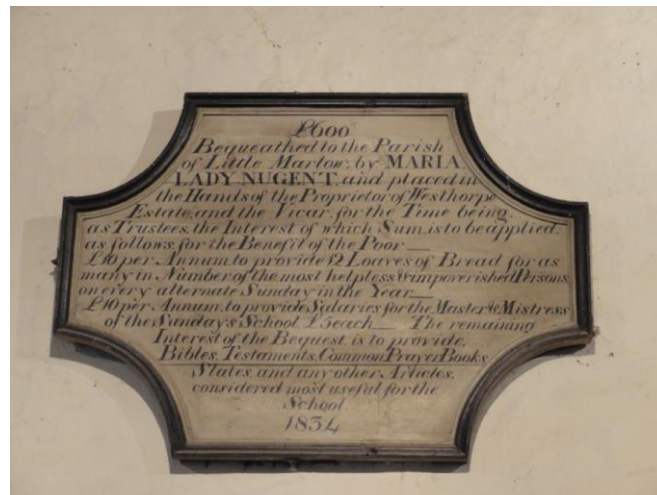 £600
Bequeathed to the Parish
of Little Marlow, by MARIA,
LADY NUGENT, and placed in
the Hands of the Proprietor of Westhorpe
Estate, and the Vicar, for the Time being,
as Trustees, the Interest of which Sum, is to be applied,
as follows, for the Benefit of the Poor —
£10 per Annum, to provide 12 Loaves of Bread for as
many in Number of the most helpless & impoverished Persons,
on every alternate Sunday in the Year —
£10 per Annum, to provide Salaries for the Master & Mistress
of the Sunday's School, £5 each — The remaining
Interest of the Bequest, is to provide,
Bibles, Testaments, Common Prayer Books,
Slates, and any other Articles,
considered most useful for the
School
1834